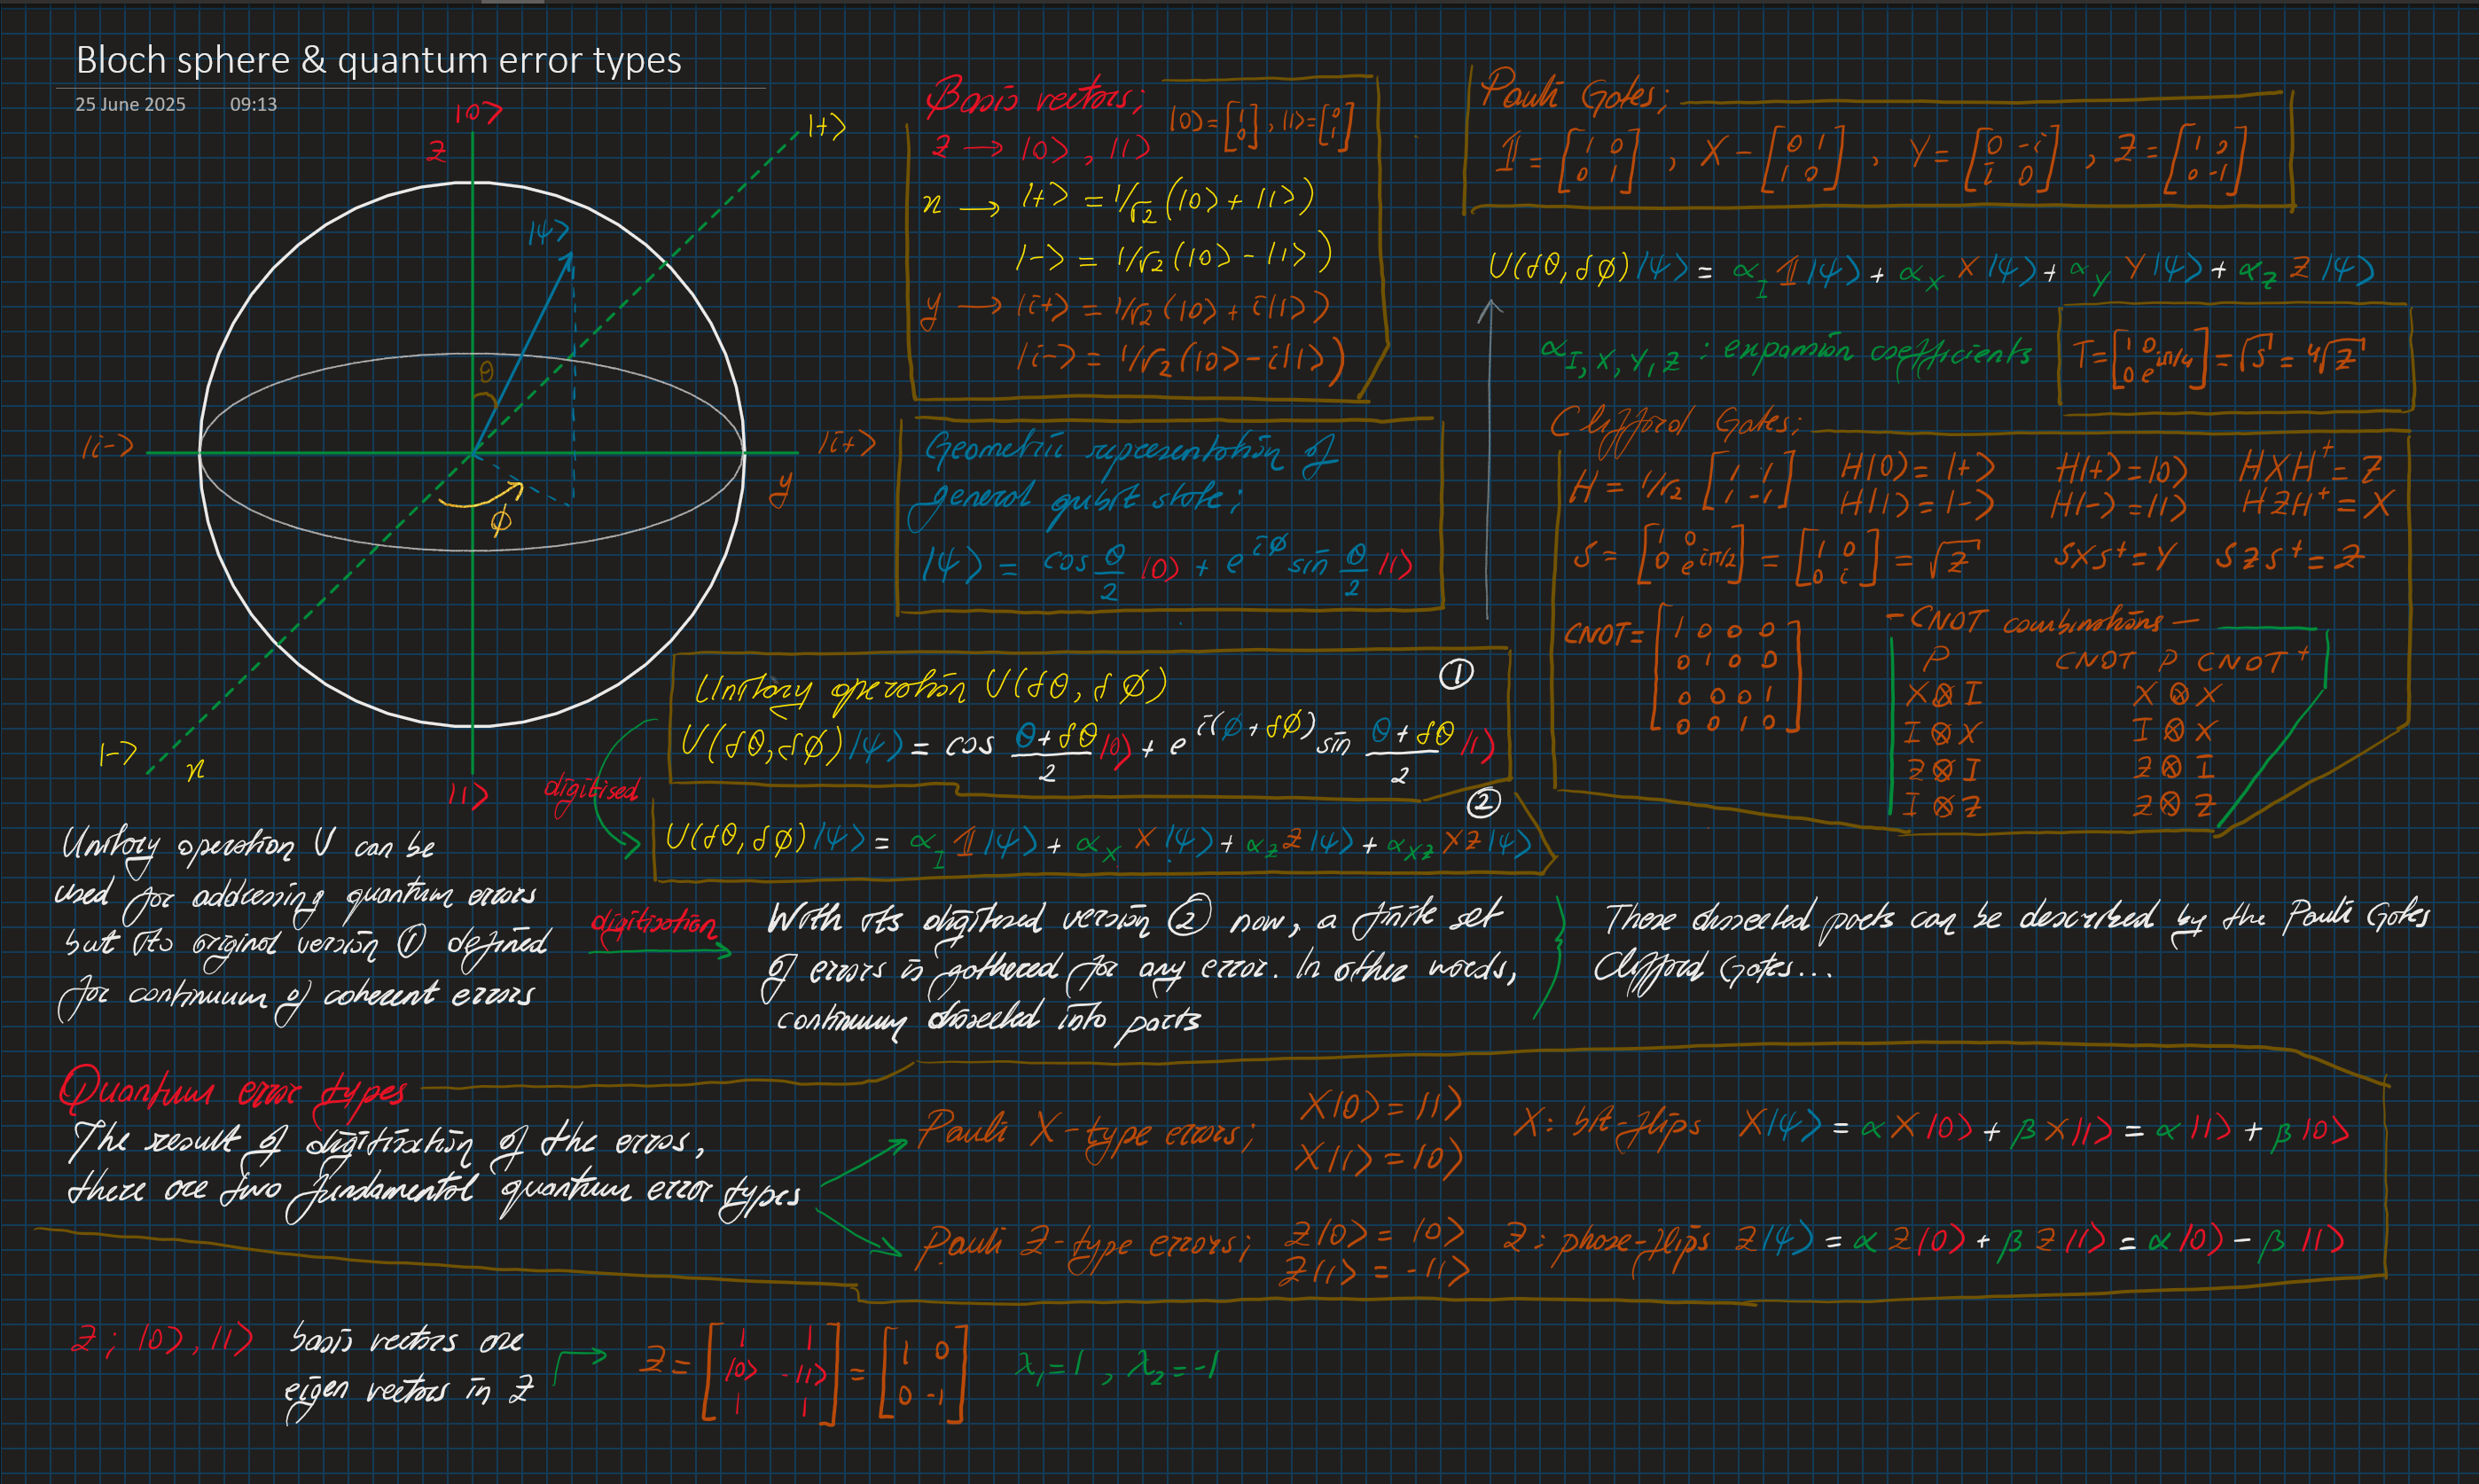 Bloch sphere & quantum error types
25 June 2025 09:13
|0⟩
Z
|+⟩
|ψ⟩
θ
|i-⟩
|i+⟩
y
ϕ
|-⟩
x
|1⟩
Basis vectors;
|0⟩ = [1 0], |1⟩ = [0 1]
Z → |0⟩, |1⟩
x → |+⟩ = 1/√2 (|0⟩ + |1⟩)
|-⟩ = 1/√2 (|0⟩ - |1⟩)
y → |i+⟩ = 1/√2 (|0⟩ + i|1⟩)
|i-⟩ = 1/√2 (|0⟩ - i|1⟩)
Geometric representation of
general qubit state;
|ψ⟩ = cos θ/2 |0⟩ + e^{iϕ} sin θ/2 |1⟩
Pauli Gates;
𝟙 = [1 0; 0 1], X - [0 1; 1 0], Y = [0 -i; i 0], Z = [1 0; 0 -1]
U(δθ, δϕ)|ψ⟩ = α_I 𝟙|ψ⟩ + α_X X|ψ⟩ + α_Y Y|ψ⟩ + α_Z Z|ψ⟩
α_{I,X,Y,Z} : expansion coefficients
T = [1 0; 0 e^{iπ/4}] = √S = ⁴√Z
Clifford Gates;
H = 1/√2 [1 1; 1 -1] H|0⟩ = |+⟩ H|+⟩ = |0⟩ HXH† = Z
H|1⟩ = |-⟩ H|-⟩ = |1⟩ HZH† = X
S = [1 0; 0 e^{iπ/2}] = [1 0; 0 i] = √Z SXS† = Y SZS† = Z
CNOT = [1 0 0 0; 0 1 0 0; 0 0 0 1; 0 0 1 0]
- CNOT combinations -
P CNOT P CNOT†
X⊗I X⊗X
I⊗X I⊗X
Z⊗I Z⊗I
I⊗Z Z⊗Z
Unitary operation U(δθ, δϕ) ①
U(δθ, δϕ)|ψ⟩ = cos (θ+δθ)/2 |0⟩ + e^{i(ϕ+δϕ)} sin (θ+δθ)/2 |1⟩
digitised
②
U(δθ, δϕ)|ψ⟩ = α_I 𝟙|ψ⟩ + α_X X|ψ⟩ + α_Z Z|ψ⟩ + α_XZ XZ|ψ⟩
Unitary operation U can be
used for addressing quantum errors
but its original version ① defined
for continuum of coherent errors
digitisation
With its digitised version ② now, a finite set
of errors is gathered for any error. In other words,
continuum dissected into parts
These dissected parts can be described by the Pauli Gates
Clifford Gates...
Quantum error types
The result of digitisation of the erros,
there are two fundamental quantum error types
Pauli X-type errors; X|0⟩ = |1⟩
X|1⟩ = |0⟩
X: bit-flips X|ψ⟩ = αX|0⟩ + βX|1⟩ = α|1⟩ + β|0⟩
Pauli Z-type errors; Z|0⟩ = |0⟩
Z|1⟩ = -|1⟩
Z: phase-flips Z|ψ⟩ = αZ|0⟩ + βZ|1⟩ = α|0⟩ - β|1⟩
Z; |0⟩, |1⟩ basis vectors are
eigen vectors in Z
Z = [|0⟩ -|1⟩] = [1 0; 0 -1] λ₁ = 1, λ₂ = -1